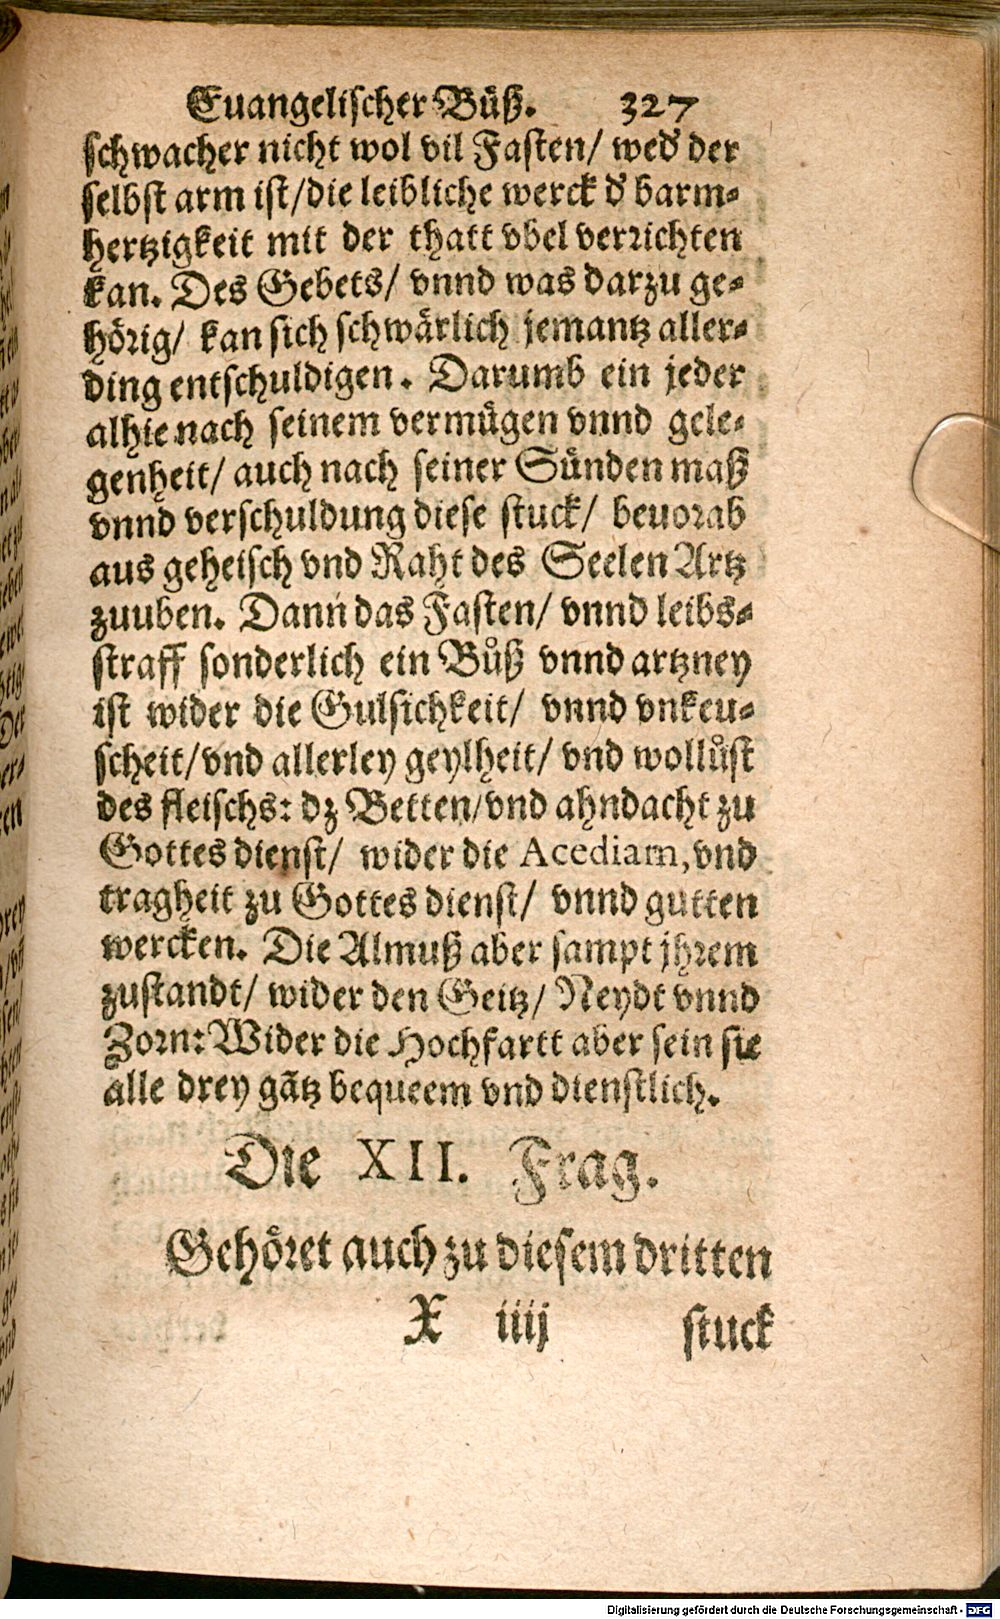 Euangelischer Bůß. 327
schwacher nicht wol vil Fasten/ wed' der
selbst arm ist/die leibliche werck d' barm⸗
hertzigkeit mit der thatt vbel verrichten
kan. Des Gebets/ vnnd was darzu ge⸗
hörig/ kan sich schwärlich jemantz aller⸗
ding entschuldigen. Darumb ein jeder
alhie nach seinem vermügen vnnd gele⸗
genheit/ auch nach seiner Sünden maß
vnnd verschuldung diese stuck/ beuorab
aus geheisch vnd Raht des Seelen Artz
zuuben. Dann das Fasten/ vnnd leibs⸗
straff sonderlich ein Bůß vnnd artzney
ist wider die Gulsichkeit/ vnnd vnkeu⸗
scheit/vnd allerley geylheit/ vnd wollůst
des fleischs: dz Betten/vnd ahndacht zu
Gottes dienst/ wider die Acediam, vnd
tragheit zu Gottes dienst/ vnnd gutten
wercken. Die Almuß aber sampt jhrem
zustandt/ wider den Geitz/ Neydt vnnd
Zorn: Wider die Hochfartt aber sein sie
alle drey gãtz bequeem vnd dienstlich.
Die XII. Frag.
Gehöret auch zu diesem dritten
X iiij stuck
Digitalisierung gefördert durch die Deutsche Forschungsgemeinschaft - DFG